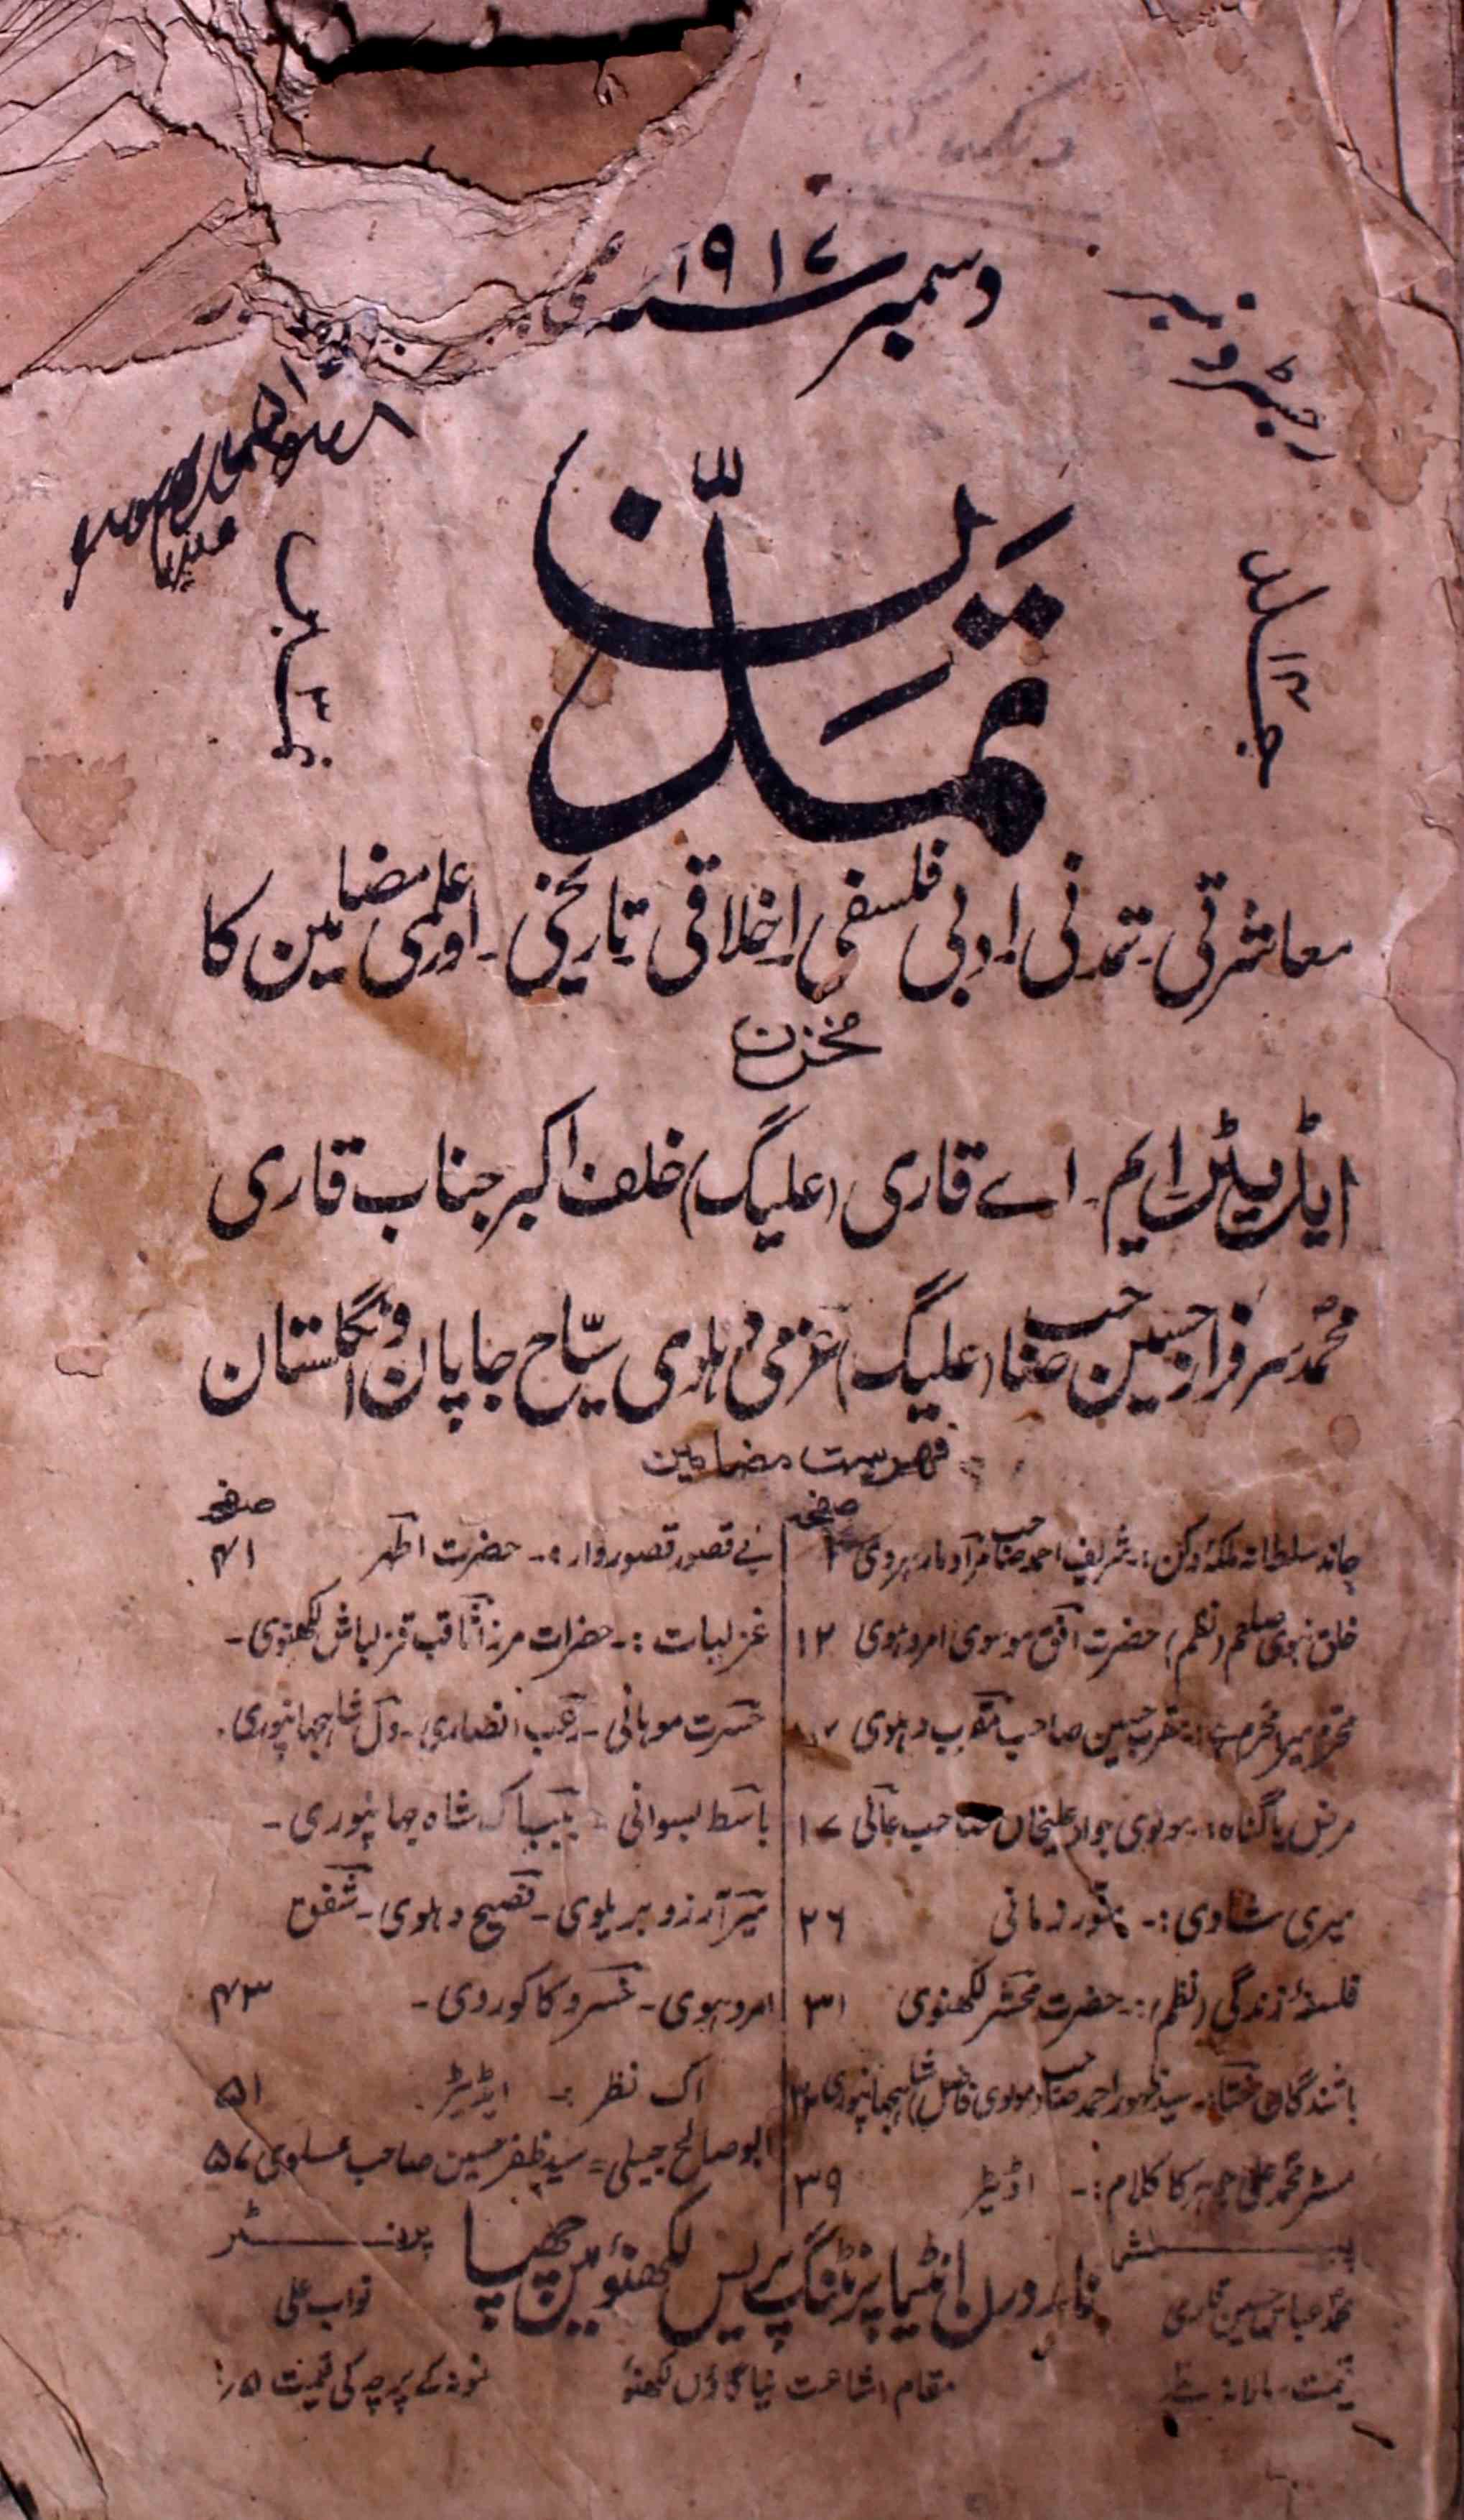 دسمبر سنہ ۱۹۱۷
رجسٹرڈ نمبر
جلد ۱۳
نمبر ۳
تمدّن
معاشرتی۔ تمدنی۔ ادبی فلسفی۔ اخلاقی تاریخی۔ اور علمی مضامین کا
مخزن
ایڈیٹر ایم۔ اے قاری (علیگ) خلف اکبر جناب قاری
محمد سرفراز حسین صاحب (علیگ) عزمی دہلوی سیّاح جاپان و انگلستان
فہرست مضامین
صفحہ
چاند سلطانہ ملکۂ دکن :۔ شریف احمد صاحب مرآد مارہروی ۲
خلق نبوی صلعم (نظم) حضرت افق موسوی امروہوی ۱۲
مقرب حسین صاحب مقرب دہلوی
مرض یا گناہ :۔ مولوی جواد علیخاں صاحب عالی ۱۷
میری شادی :۔ منور زمانی ۲۶
فلسفۂ زندگی (نظم) :۔ حضرت محشر لکھنوی ۳۱
باشندگان :۔ سید ظہور احمد صاحب (مولوی فاضل) شاہجہانپوری
مسٹر محمد علی جوہر کا کلام :۔ اڈیٹر ۳۹
صفحہ
بے قصور قصوروار :۔ حضرت اظہر ۴۱
غزلیات :۔ حضرات مرزا ثاقب قزلباش لکھنوی۔
حسرت موہانی۔ رغب انصاری۔ دل شاہجہانپوری۔
باسط بسوانی۔ بیباک شاہ جہانپوری۔
میر آرزو بریلوی۔ فصیح دہلوی۔ شفق
امروہوی۔ خسرو کاکوروی۔ ۴۳
اک نظر :۔ ایڈیٹر ۵۱
ابو صالح جیلی = سید ظفر حسین صاحب ۵۷
پبلشر
محمد عباس حسین قاری
انڈیا پرنٹنگ پریس لکھنؤ میں چھپا
پرنٹر
نواب علی
قیمت سالانہ
مقام اشاعت نیا گاؤں لکھنؤ
نمونہ کے پرچہ کی قیمت ۵/